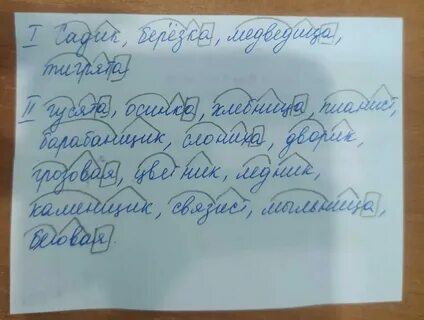 I Садик, берёзка, медведица,
тигрята
II гусята, осинка, хлебница, пианист,
барабанщик, слониха, дворик,
грозовая, цветник, ледник,
каменщик, связист, мыльница,
беговая.